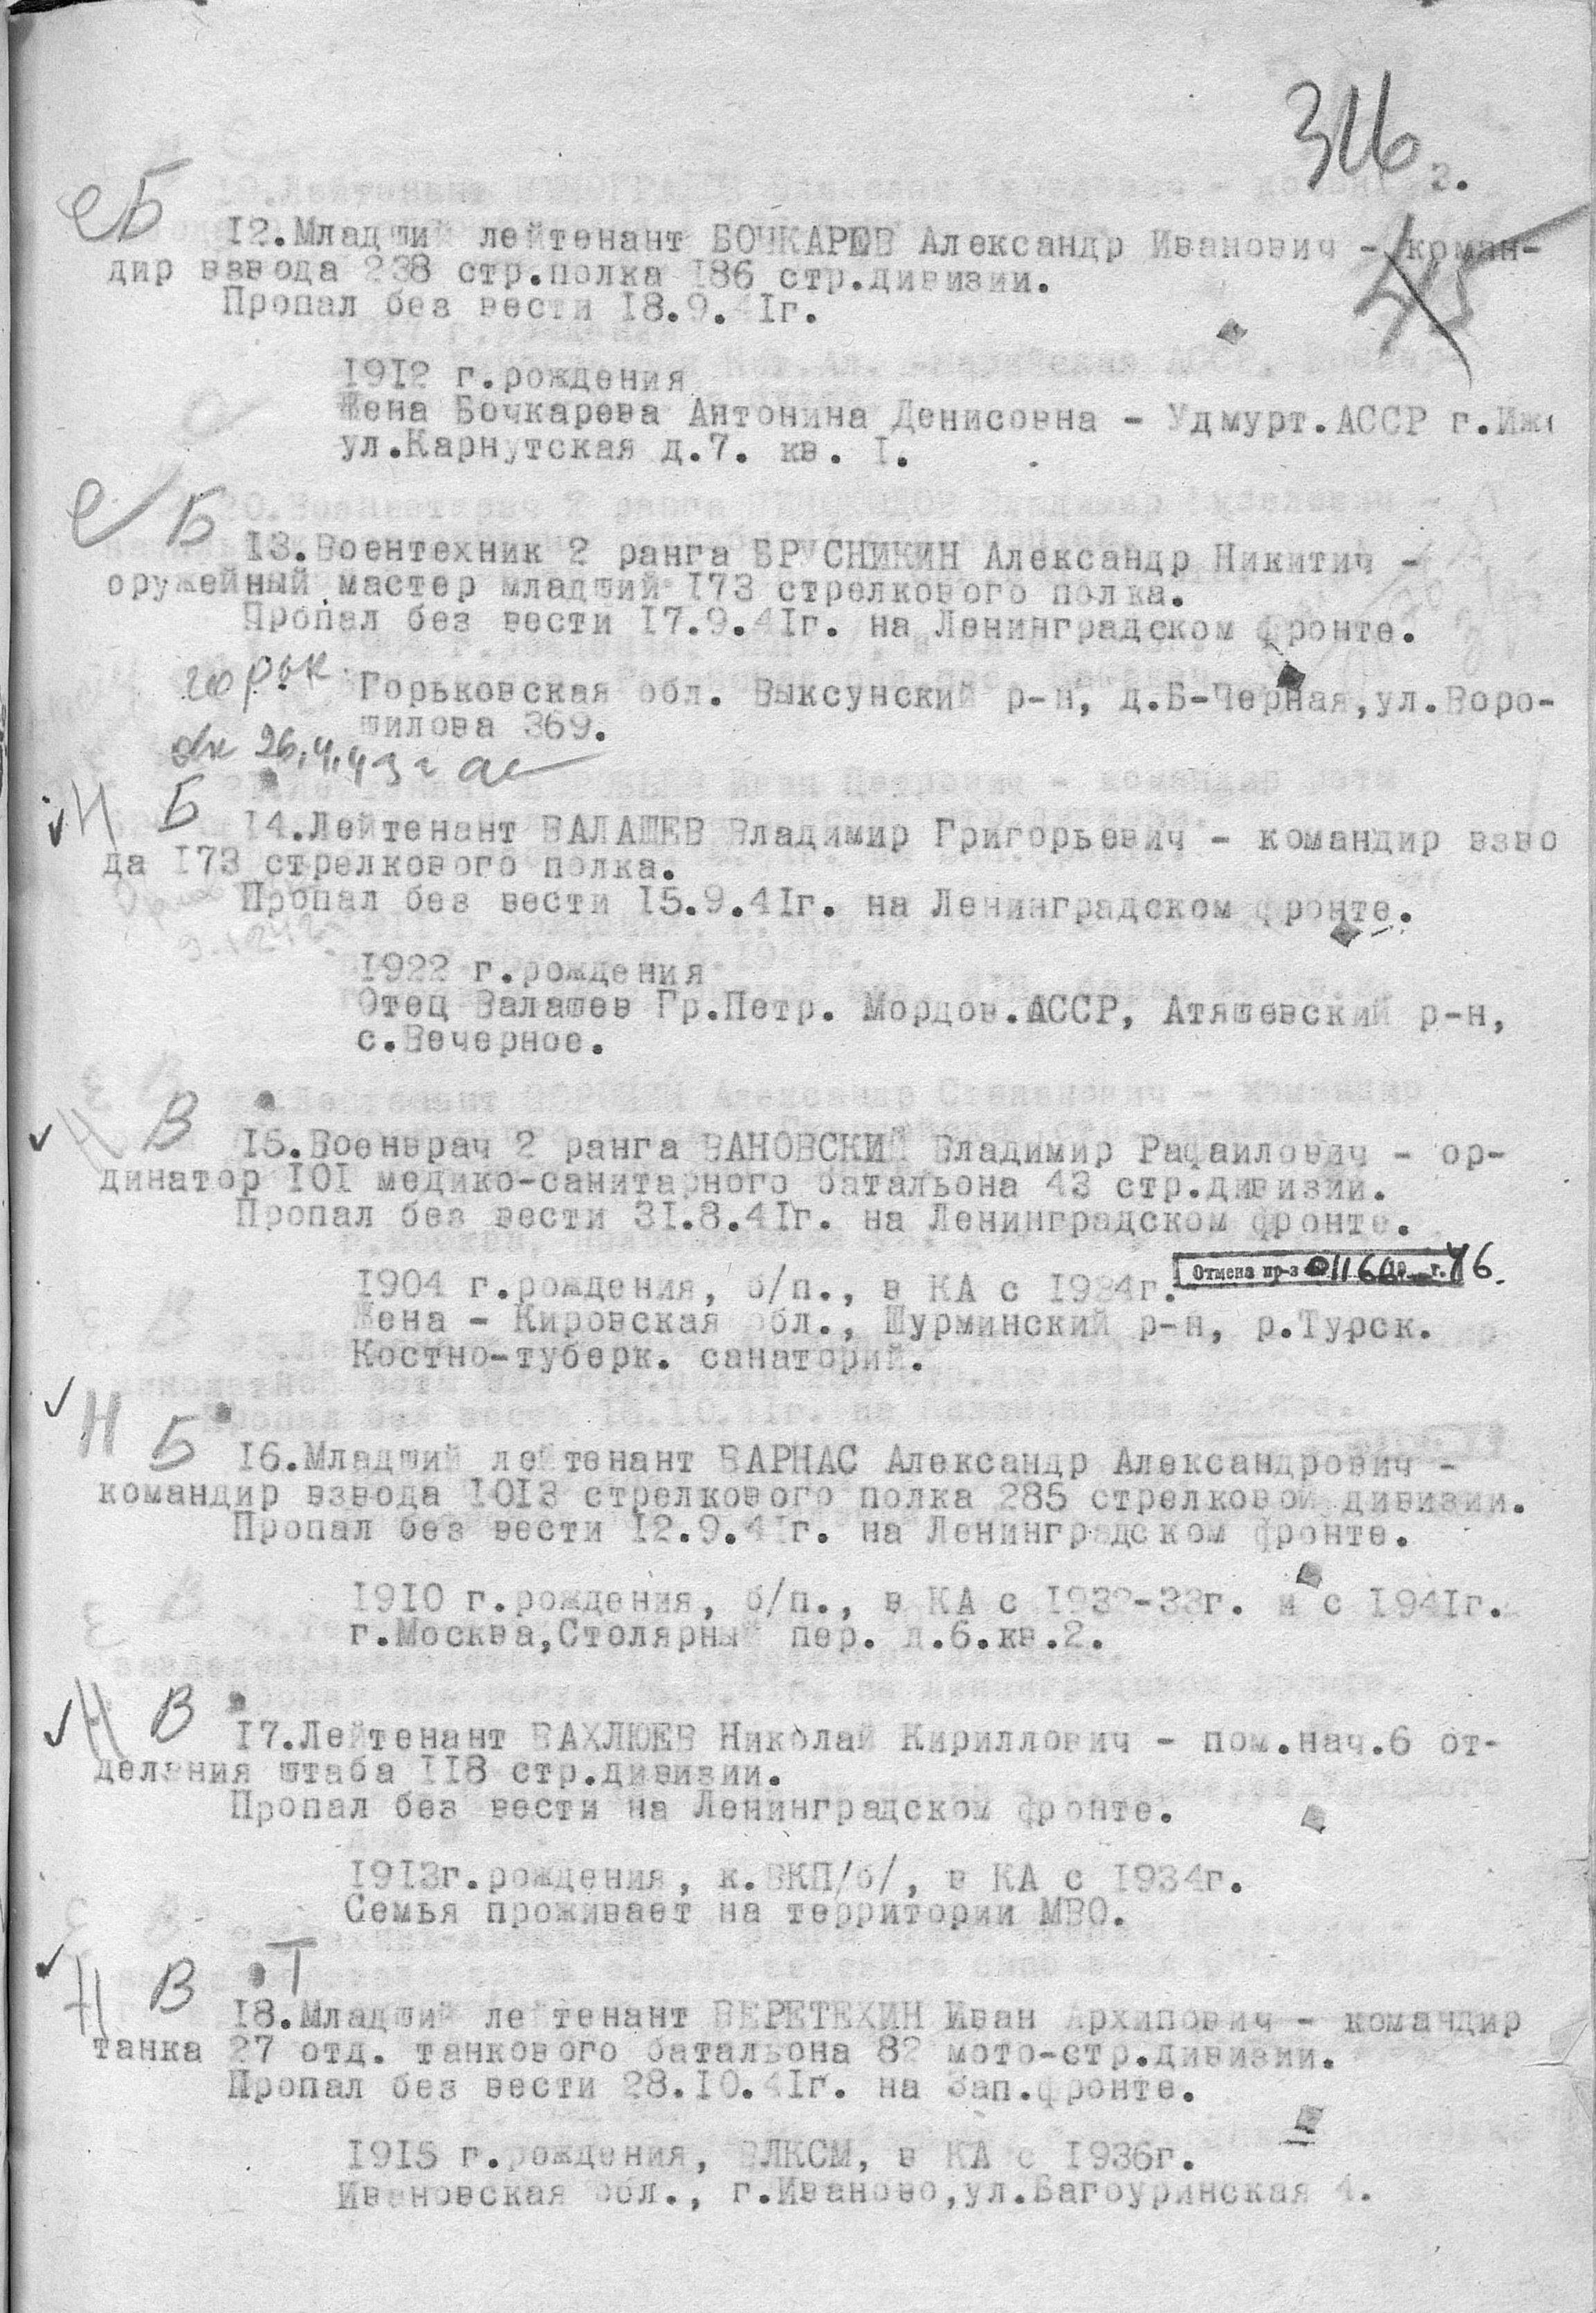 316
2.
еБ
12.Младший лейтенант БОЧКАРЕВ Александр Иванович - коман-
дир взвода 238 стр.полка 186 стр.дивизии.
Пропал без вести 18.9.41г.
1912 г.рождения
Жена Бочкарева Антонина Денисовна - Удмурт.АССР г.Иж
ул.Карнутская д.7. кв. 1.
е Б
13.Воентехник 2 ранга БРУСНИКИН Александр Никитич -
оружейный мастер младший 173 стрелкового полка.
Пропал без вести 17.9.41г. на Ленинградском фронте.
Горьковская обл. Выксунский р-н, д.Б-Черная,ул.Воро-
шилова 369.
26.4.43г
Н Б
14.Лейтенант ВАЛАШЕВ Владимир Григорьевич - командир взво
да 173 стрелкового полка.
Пропал без вести 15.9.41г. на Ленинградском фронте.
1922 г.рождения
Отец Валашев Гр.Петр. Мордов.АССР, Атяшевский р-н,
с.Вечерное.
В
15.Военврач 2 ранга ВАНОВСКИЙ Владимир Рафаилович - ор-
динатор 101 медико-санитарного батальона 43 стр.дивизии.
Пропал без вести 31.8.41г. на Ленинградском фронте.
Отмена пр-з 01160 19 г. 46.
1904 г.рождения, б/п., в КА с 1924г.
Жена - Кировская обл., Шурминский р-н, р.Турск.
Костно-туберк. санаторий.
Н Б
16.Младший лейтенант ВАРНАС Александр Александрович -
командир взвода 1013 стрелкового полка 285 стрелковой дивизии.
Пропал без вести 12.9.41г. на Ленинградском фронте.
1910 г.рождения, б/п., в КА с 1932-33г. и с 1941г.
г.Москва,Столярный пер. д.6.кв.2.
Н В
17.Лейтенант ВАХЛЮЕВ Николай Кириллович - пом.нач.6 от-
деления штаба 118 стр.дивизии.
Пропал без вести на Ленинградском фронте.
1913г.рождения, к.ВКП/б/, в КА с 1934г.
Семья проживает на территории МВО.
Н В Т
18.Младший лейтенант ВЕРЕТЕХИН Иван Архипович - командир
танка 27 отд. танкового батальона 82 мото-стр.дивизии.
Пропал без вести 28.10.41г. на Зап.фронте.
1915 г.рождения, ВЛКСМ, в КА с 1936г.
Ивановская обл., г.Иваново,ул.Багоуринская 4.